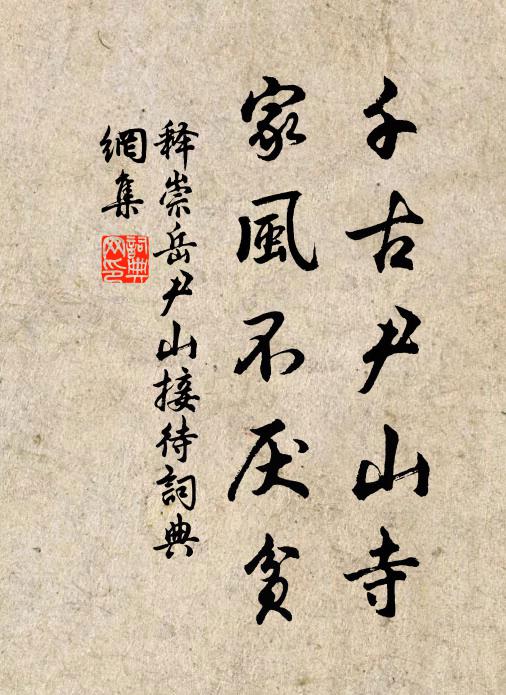 千古尹山寺
家風不厌貧
释崇岳尹山接待詞典
網集
詞典
网印